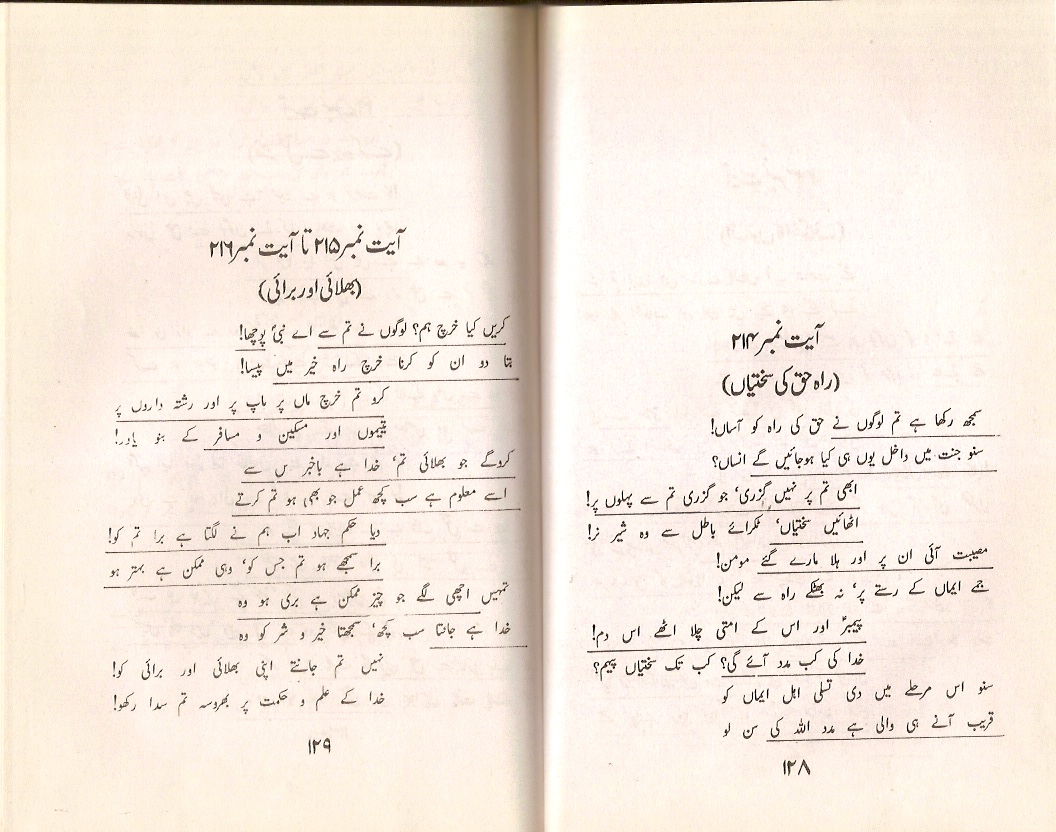 آیت نمبر ۲۱۴
(راہ حق کی سختیاں)
سمجھ رکھا ہے تم لوگوں نے حق کی راہ کو آساں!
سنو جنت میں داخل یوں ہی کیا ہوجائیں گے انساں؟
ابھی تم پر نہیں گزری، جو گزری تم سے پہلوں پر!
اٹھائیں سختیاں، ٹکرائے باطل سے وہ شیر نر!
مصیبت آئی ان پر اور ہلا مارے گئے مومن!
جمے ایماں کے رستے پر، نہ بھٹکے راہ سے لیکن!
پیمبرؐ اور اس کے امتی چلا اٹھے اس دم!
خدا کی کب مدد آئے گی؟ کب تک سختیاں پیہم؟
سنو اس مرحلے میں دی تسلی اہل ایماں کو
قریب آنے ہی والی ہے مدد اللہ کی سن لو
۱۲۸
آیت نمبر ۲۱۵ تا آیت نمبر ۲۱۶
(بھلائی اور برائی)
کریں کیا خرچ ہم؟ لوگوں نے تم سے اے نبیؐ پوچھا!
بتا دو ان کو کرنا خرچ راہ خیر میں پیسا!
کرو تم خرچ ماں پر باپ پر اور رشتہ داروں پر
یتیموں اور مسکین و مسافر کے بنو یاور!
کروگے جو بھلائی تم، خدا ہے باخبر س سے
اسے معلوم ہے سب کچھ عمل جو بھی ہو تم کرتے
دیا حکم جہاد اب ہم نے لگتا ہے برا تم کو!
برا سمجھے ہو تم جس کو، وہی ممکن ہے بہتر ہو
تمہیں اچھی لگے جو چیز ممکن ہے بری ہو وہ
خدا ہے جانتا سب کچھ، سمجھتا خیر و شر کو وہ
نہیں تم جانتے اپنی بھلائی اور برائی کو!
خدا کے علم و حکمت پر بھروسہ تم سدا رکھو!
۱۲۹